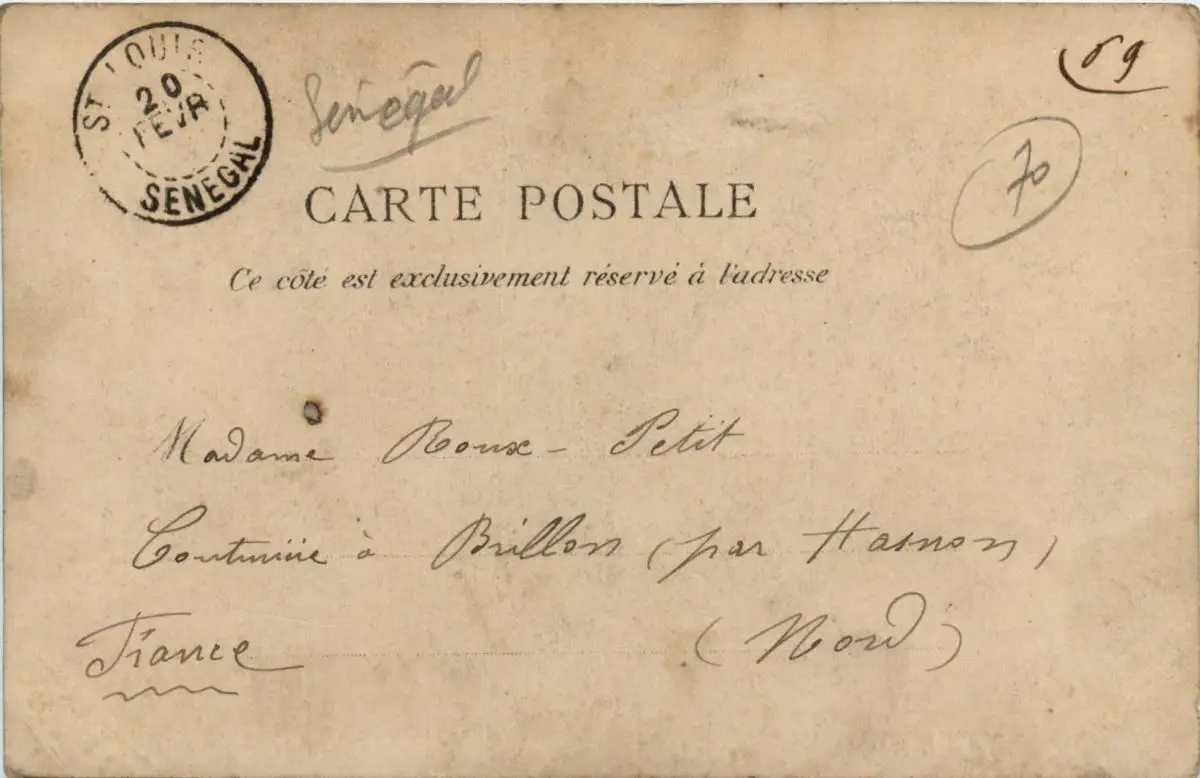 ST LOUIS
20
FEVR
SENEGAL
Sénégal
69
70
CARTE POSTALE
Ce côté est exclusivement réservé à l'adresse
Madame Roux - Petit
Couturière à Brillon (par Hasnon)
France (Nord)